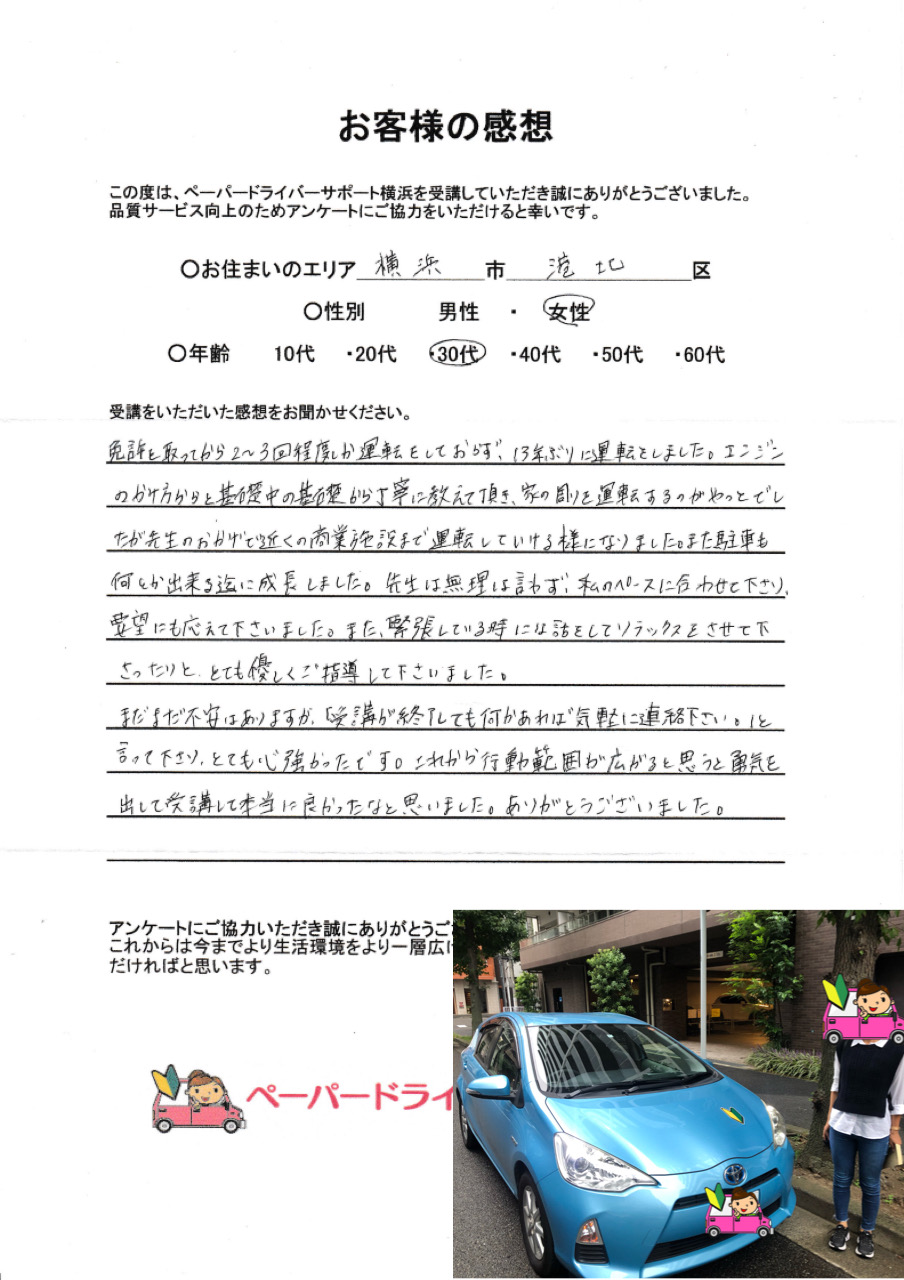 お客様の感想
この度は、ペーパードライバーサポート横浜を受講していただき誠にありがとうございました。
品質サービス向上のためアンケートにご協力をいただけると幸いです。
〇お住まいのエリア 横浜 市 港北 区
〇性別 男性 ・ 女性
〇年齢 10代 ・20代 ・30代 ・40代 ・50代 ・60代
受講をいただいた感想をお聞かせください。
免許を取ってから2〜3回程度しか運転をしておらず、13年ぶりに運転をしました。エンジン
のかけ方からと基礎中の基礎から丁寧に教えて頂き、家の周りを運転するのがやっとでし
たが先生のおかげで近くの商業施設まで運転していける様になりました。また駐車も
何とか出来る迄に成長しました。先生は無理は言わず、私のペースに合わせて下さり、
要望にも応えて下さいました。また、緊張している時には話をしてリラックスをさせて下
さったりと、とても優しくご指導して下さいました。
まだまだ不安はありますが、「受講が終了しても何かあれば気軽に連絡下さい。」と
言って下さり、とても心強かったです。これから行動範囲が広がると思うと勇気を
出して受講して本当に良かったなと思いました。ありがとうございました。
アンケートにご協力いただき誠にありがとうご
これからは今までより生活環境をより一層広げ
だければと思います。
ペーパードライ